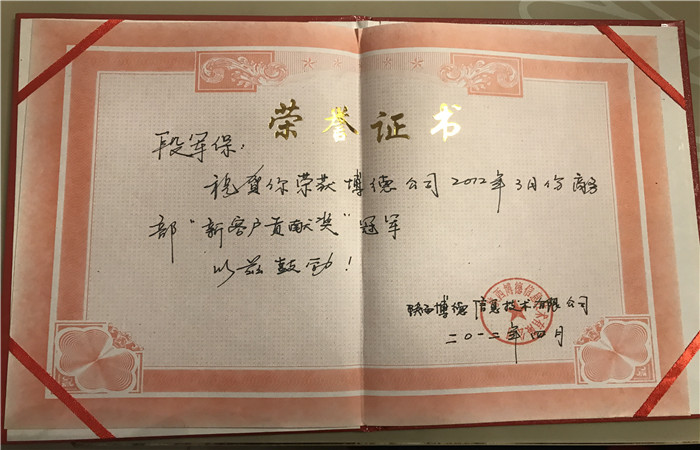 荣誉证书
段军保：
祝贺你荣获博德公司2012年3月份商务
部“新客户贡献奖”冠军
以兹鼓励！
陕西博德信息技术有限公司
二〇一二年四月